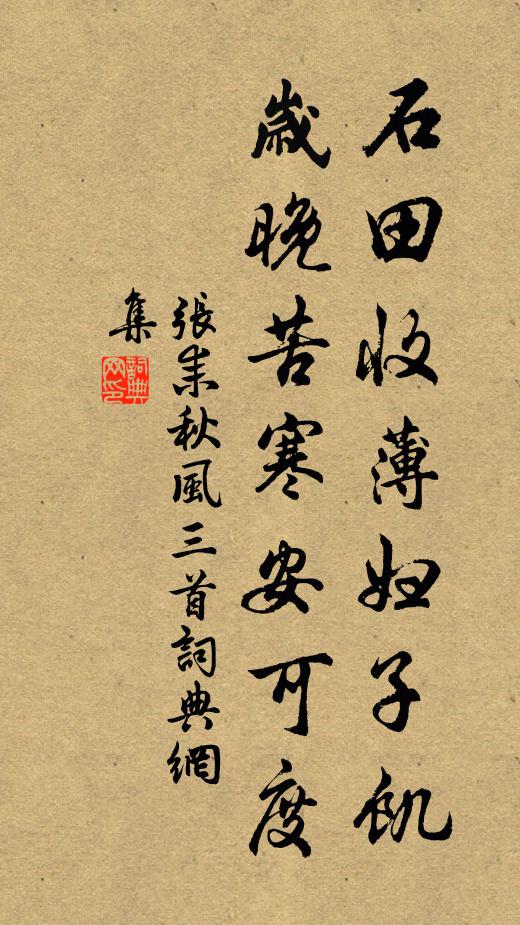 石田收薄妇子飢
歲晚苦寒安可度
張耒秋風三首詞典網
集
詞典
网印